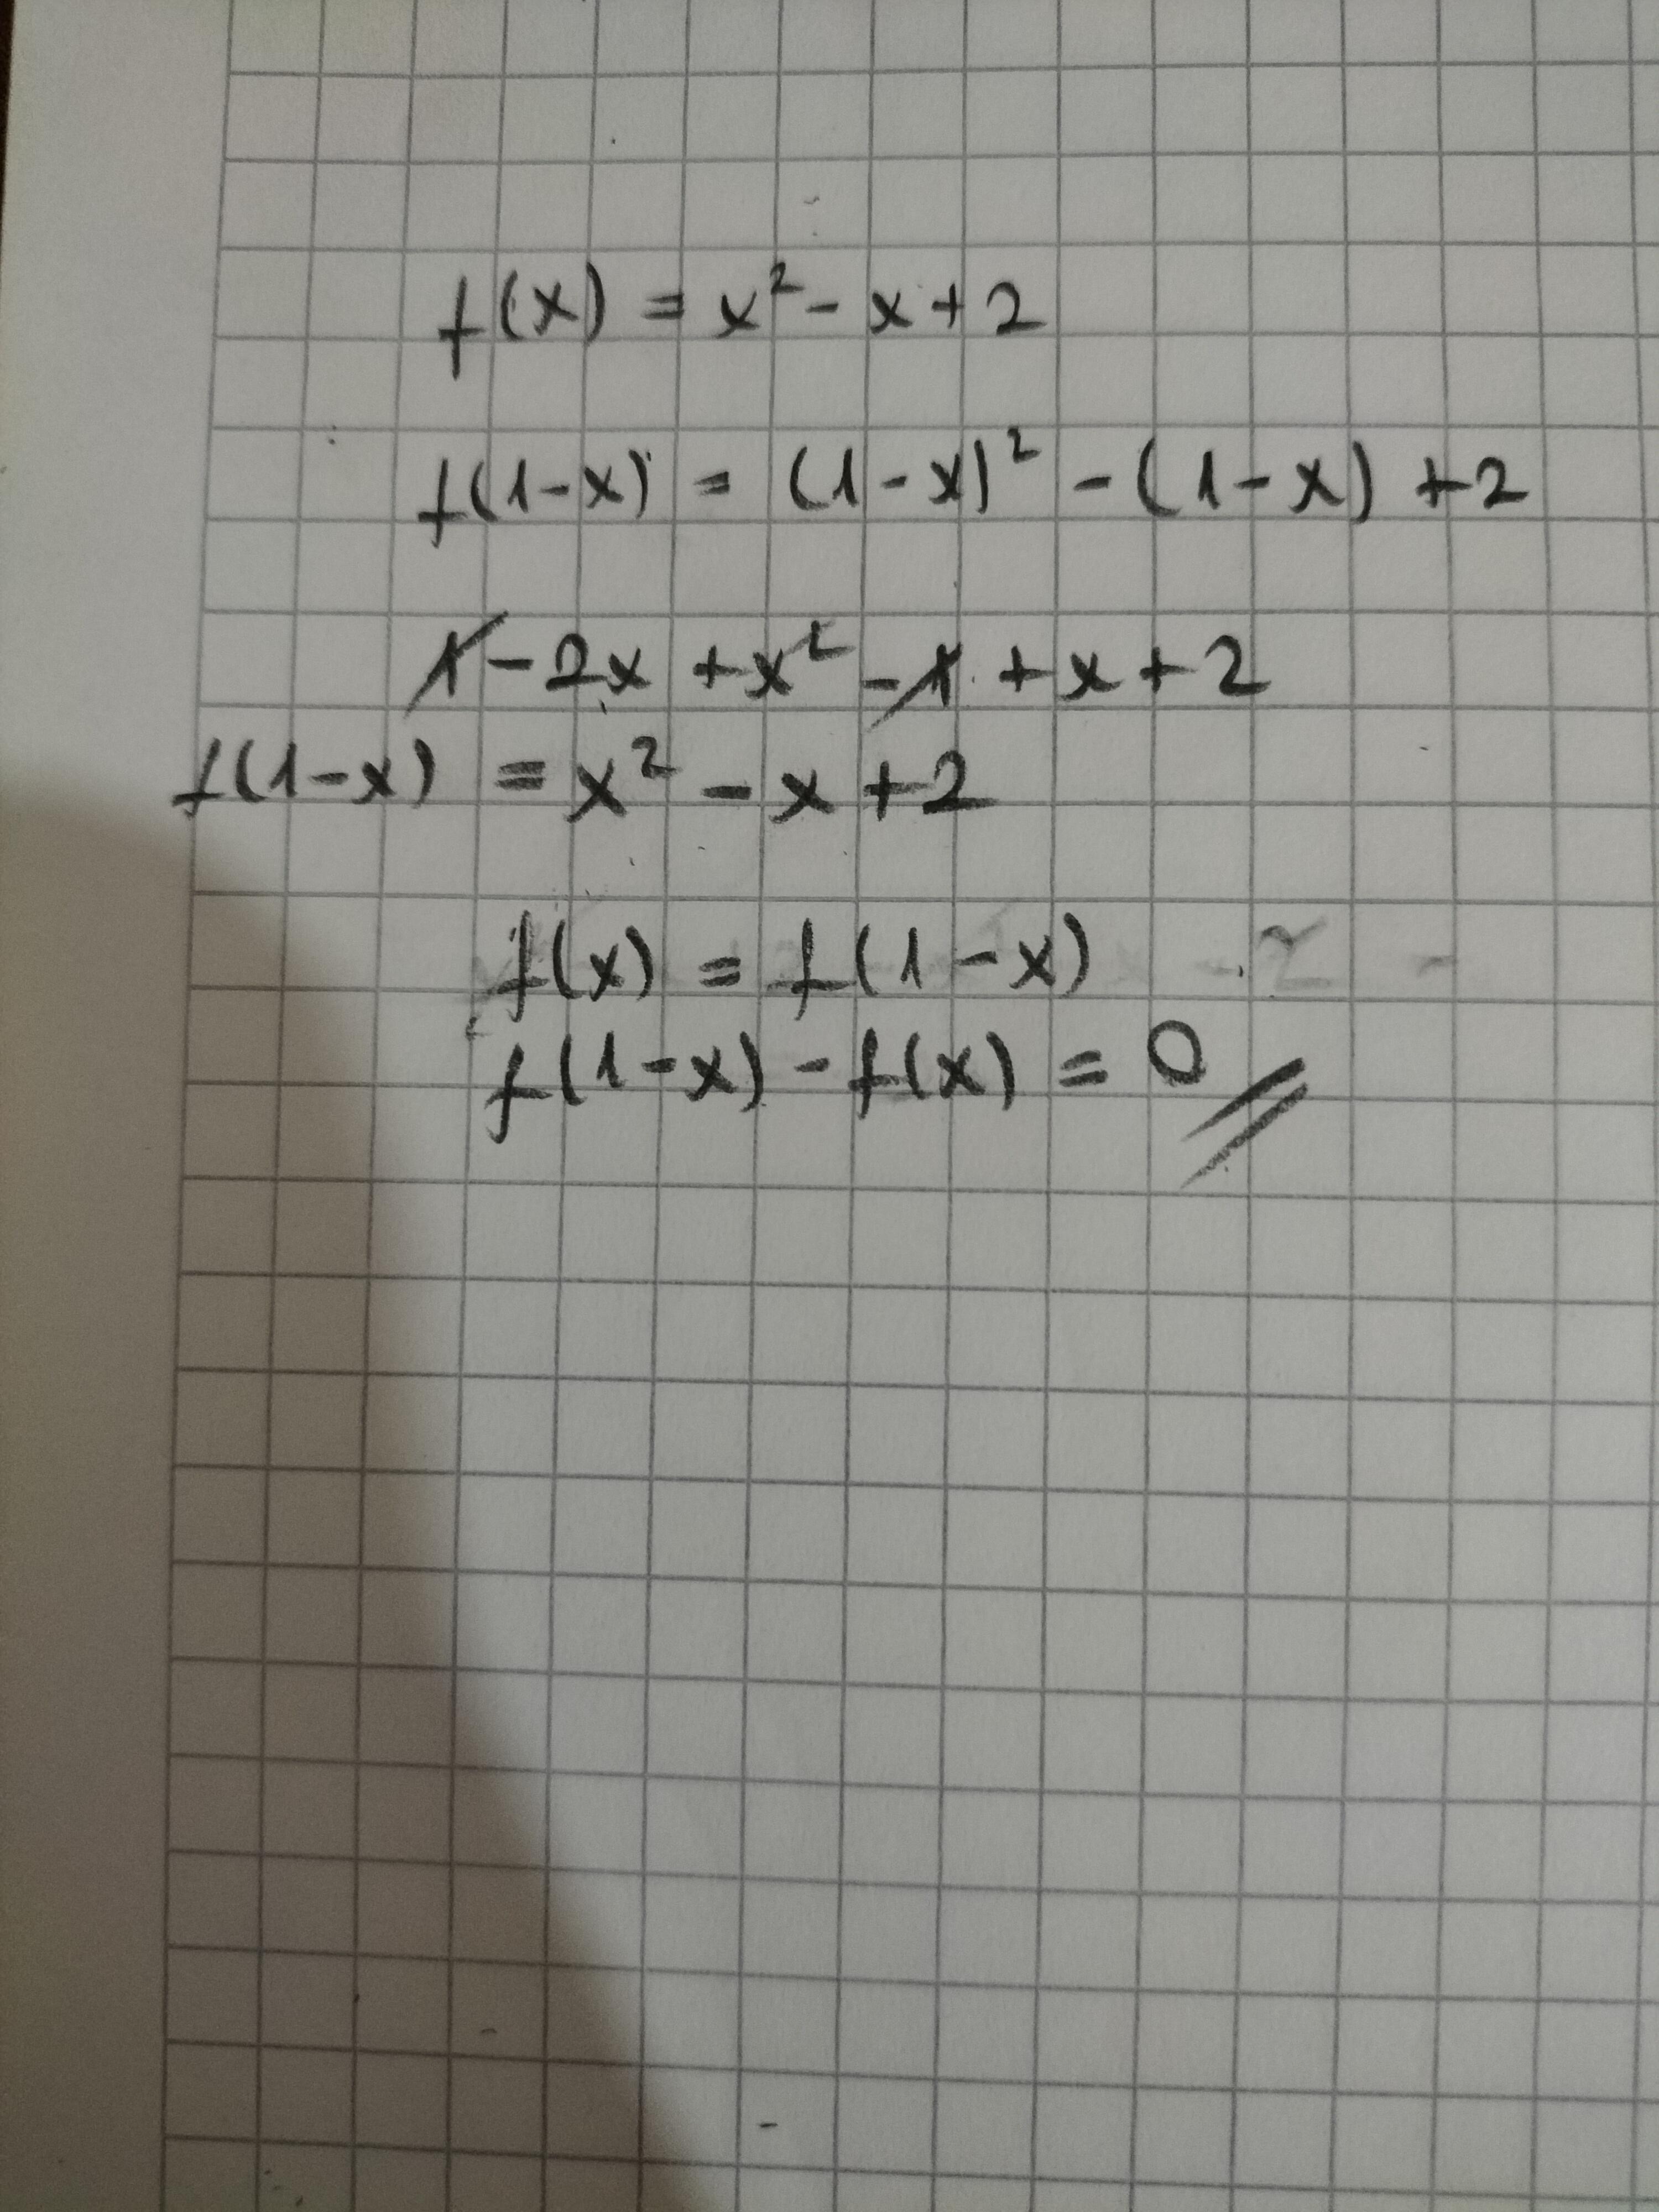 f(x) = x² - x + 2
f(1-x) = (1-x)² - (1-x) + 2
1 - 2x + x² - 1 + x + 2
f(1-x) = x² - x + 2
f(x) = f(1-x)
f(1-x) - f(x) = 0